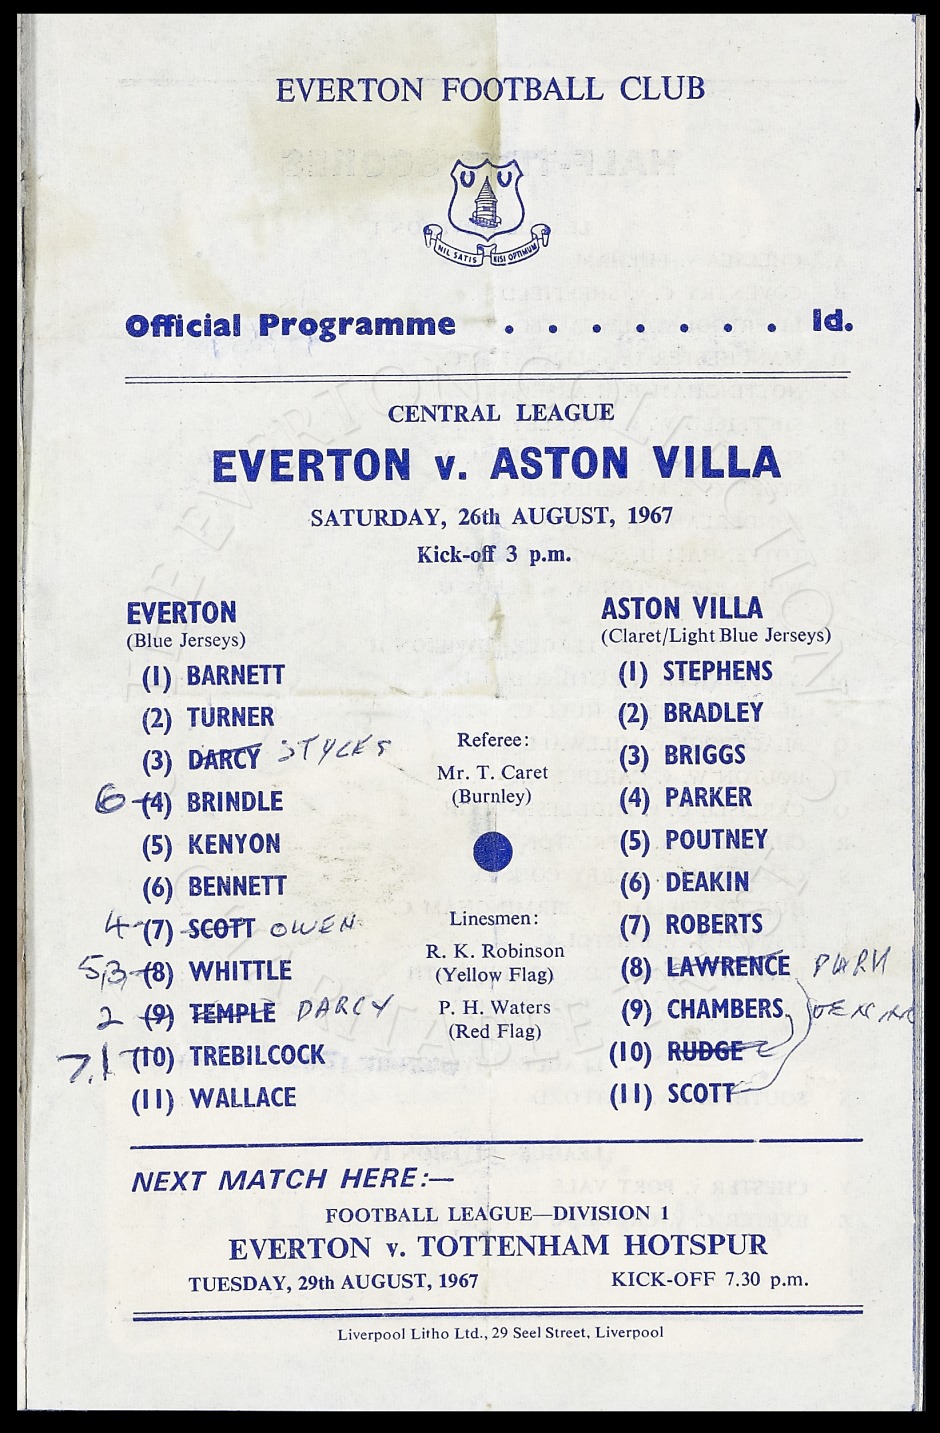 EVERTON FOOTBALL CLUB
NIL SATIS NISI OPTIMUM
Official Programme . . . . . . . 1d.
CENTRAL LEAGUE
EVERTON v. ASTON VILLA
SATURDAY, 26th AUGUST, 1967
Kick-off 3 p.m.
EVERTON
(Blue Jerseys)
(1) BARNETT
(2) TURNER
(3) DARCY STYLES
6 (4) BRINDLE
(5) KENYON
(6) BENNETT
4 (7) SCOTT OWEN
5,3 (8) WHITTLE
2 (9) TEMPLE DARCY
7,1 (10) TREBILCOCK
(11) WALLACE
Referee:
Mr. T. Caret
(Burnley)
Linesmen:
R. K. Robinson
(Yellow Flag)
P. H. Waters
(Red Flag)
ASTON VILLA
(Claret/Light Blue Jerseys)
(1) STEPHENS
(2) BRADLEY
(3) BRIGGS
(4) PARKER
(5) POUTNEY
(6) DEAKIN
(7) ROBERTS
(8) LAWRENCE
(9) CHAMBERS
(10) RUDGE
(11) SCOTT
NEXT MATCH HERE:—
FOOTBALL LEAGUE—DIVISION 1
EVERTON v. TOTTENHAM HOTSPUR
TUESDAY, 29th AUGUST, 1967 KICK-OFF 7.30 p.m.
Liverpool Litho Ltd., 29 Seel Street, Liverpool